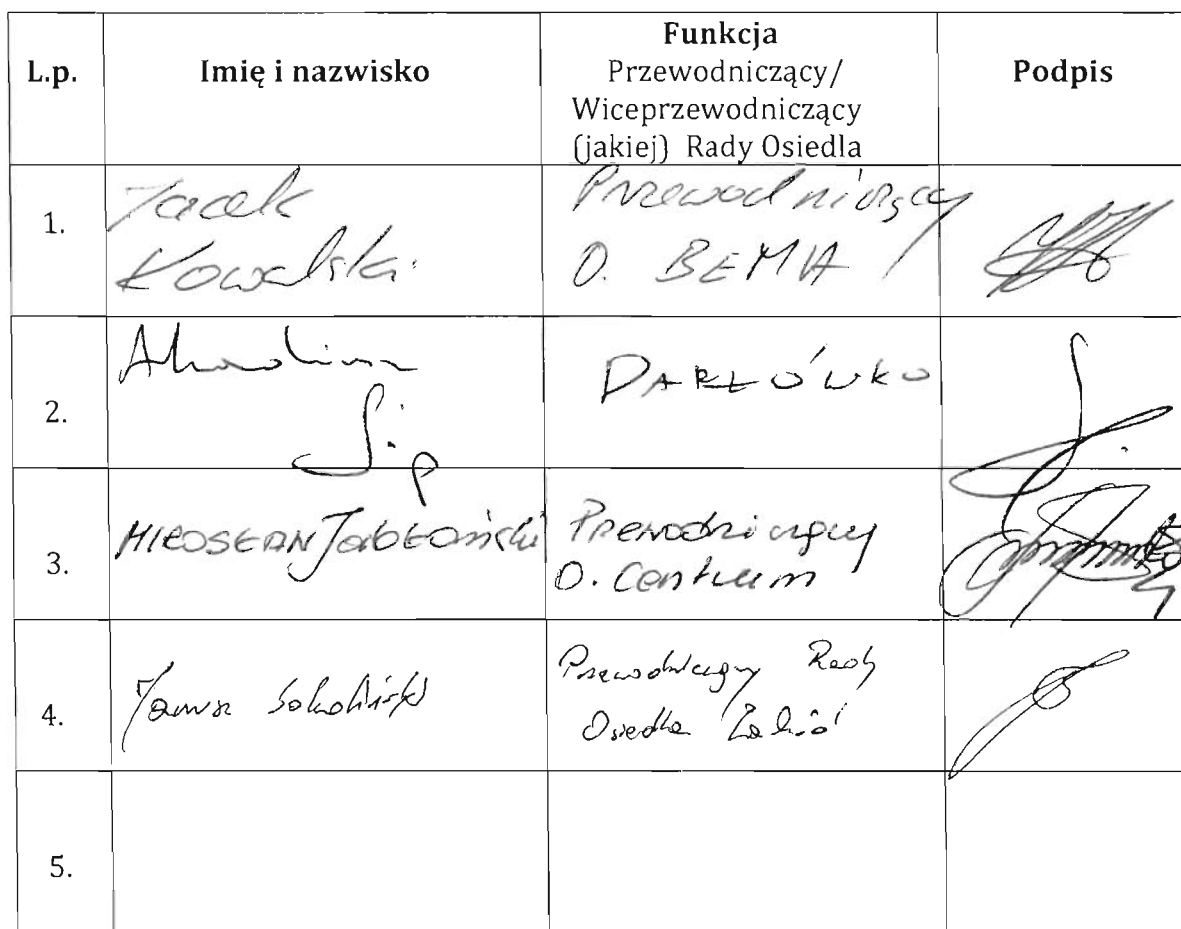 L.p.
Imię i nazwisko
Funkcja
Przewodniczący/
Wiceprzewodniczący
(jakiej) Rady Osiedla
Podpis
1.
Jacek
Kowalski
Przewodniczący
O. BEMA
2.
Arkadiusz
Sip
DARŁÓWKO
3.
MIROSŁAW Jabłoński
Przewodniczący
O. Centrum
4.
Janusz Sokoliński
Przewodniczący Rady
Osiedla
5.